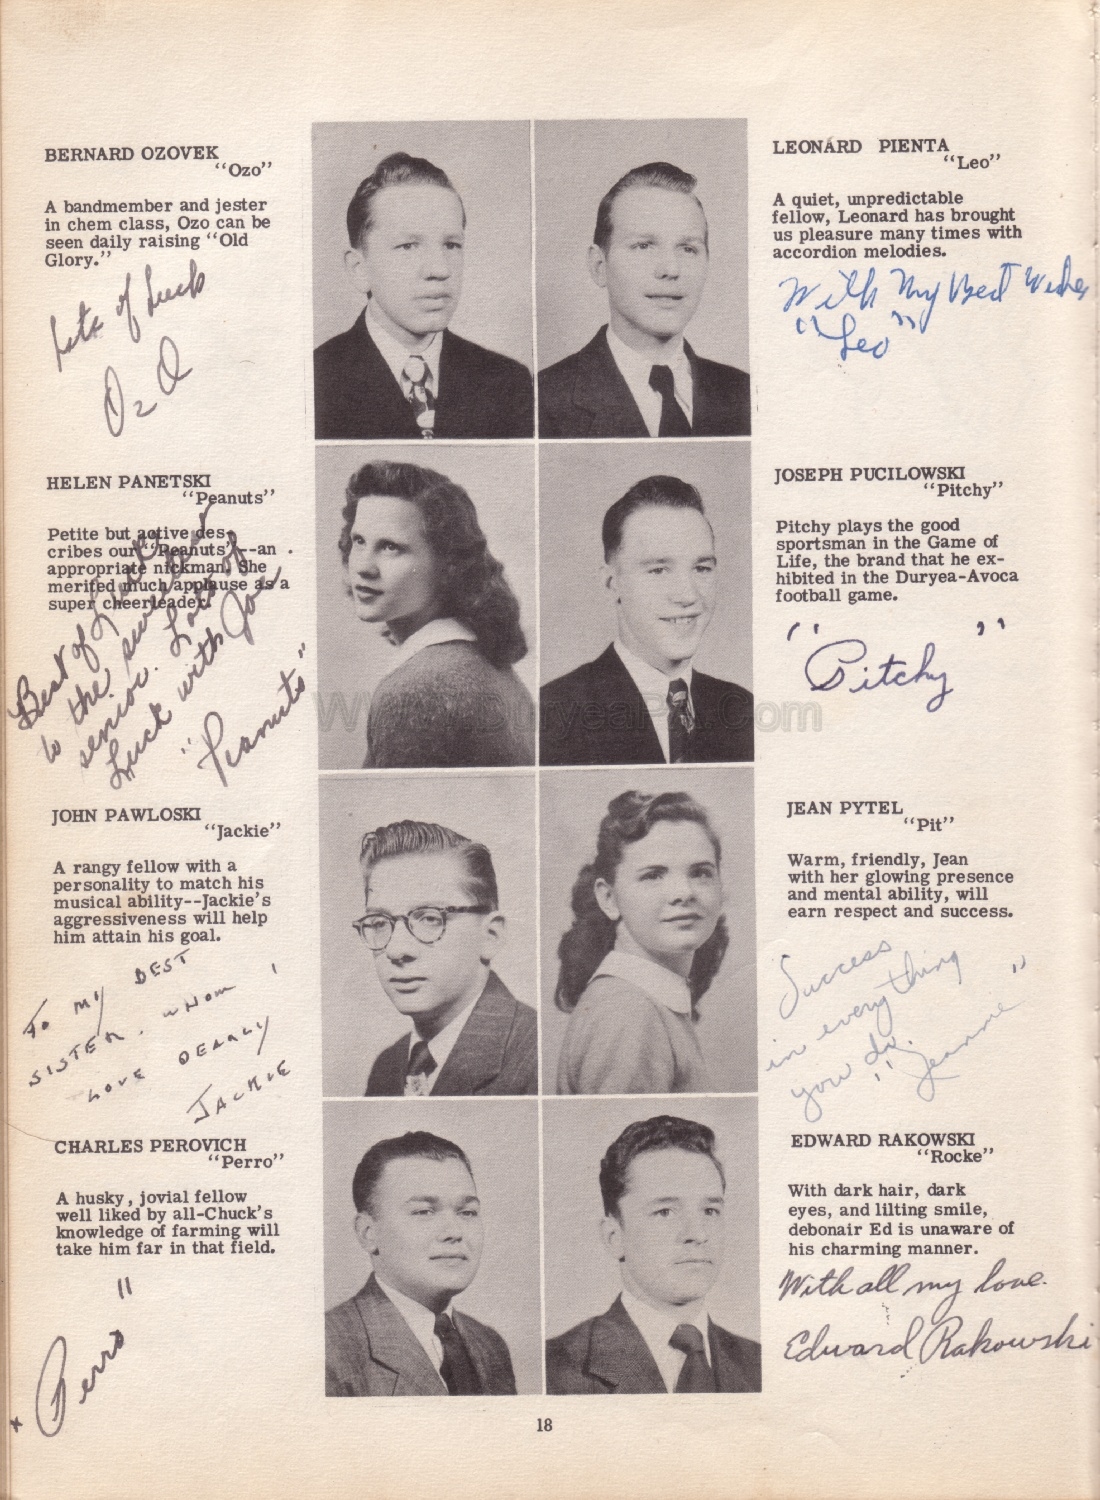 BERNARD OZOVEK
"Ozo"
A bandmember and jester
in chem class, Ozo can be
seen daily raising "Old
Glory."
Lots of Luck
OzO
HELEN PANETSKI
"Peanuts"
Petite but active des-
cribes our "Peanuts"--an
appropriate nickman. She
merited much applause as a
super cheerleader.
Best of Luck
to the sweetest
senior. Lots of
Luck with Joe
"Peanuts"
JOHN PAWLOSKI
"Jackie"
A rangy fellow with a
personality to match his
musical ability--Jackie's
aggressiveness will help
him attain his goal.
TO MY BEST
SISTER. WHOM I
LOVE DEARLY
JACKIE
CHARLES PEROVICH
"Perro"
A husky, jovial fellow
well liked by all-Chuck's
knowledge of farming will
take him far in that field.
"Perro"
LEONARD PIENTA
"Leo"
A quiet, unpredictable
fellow, Leonard has brought
us pleasure many times with
accordion melodies.
With My Best Wishes
"Leo"
JOSEPH PUCILOWSKI
"Pitchy"
Pitchy plays the good
sportsman in the Game of
Life, the brand that he ex-
hibited in the Duryea-Avoca
football game.
"Pitchy"
JEAN PYTEL
"Pit"
Warm, friendly, Jean
with her glowing presence
and mental ability, will
earn respect and success.
Success
in everything
you do.
"Jeanne"
EDWARD RAKOWSKI
"Rocke"
With dark hair, dark
eyes, and lilting smile,
debonair Ed is unaware of
his charming manner.
With all my love.
Edward Rakowski
www.DuryeaPA.Com
18